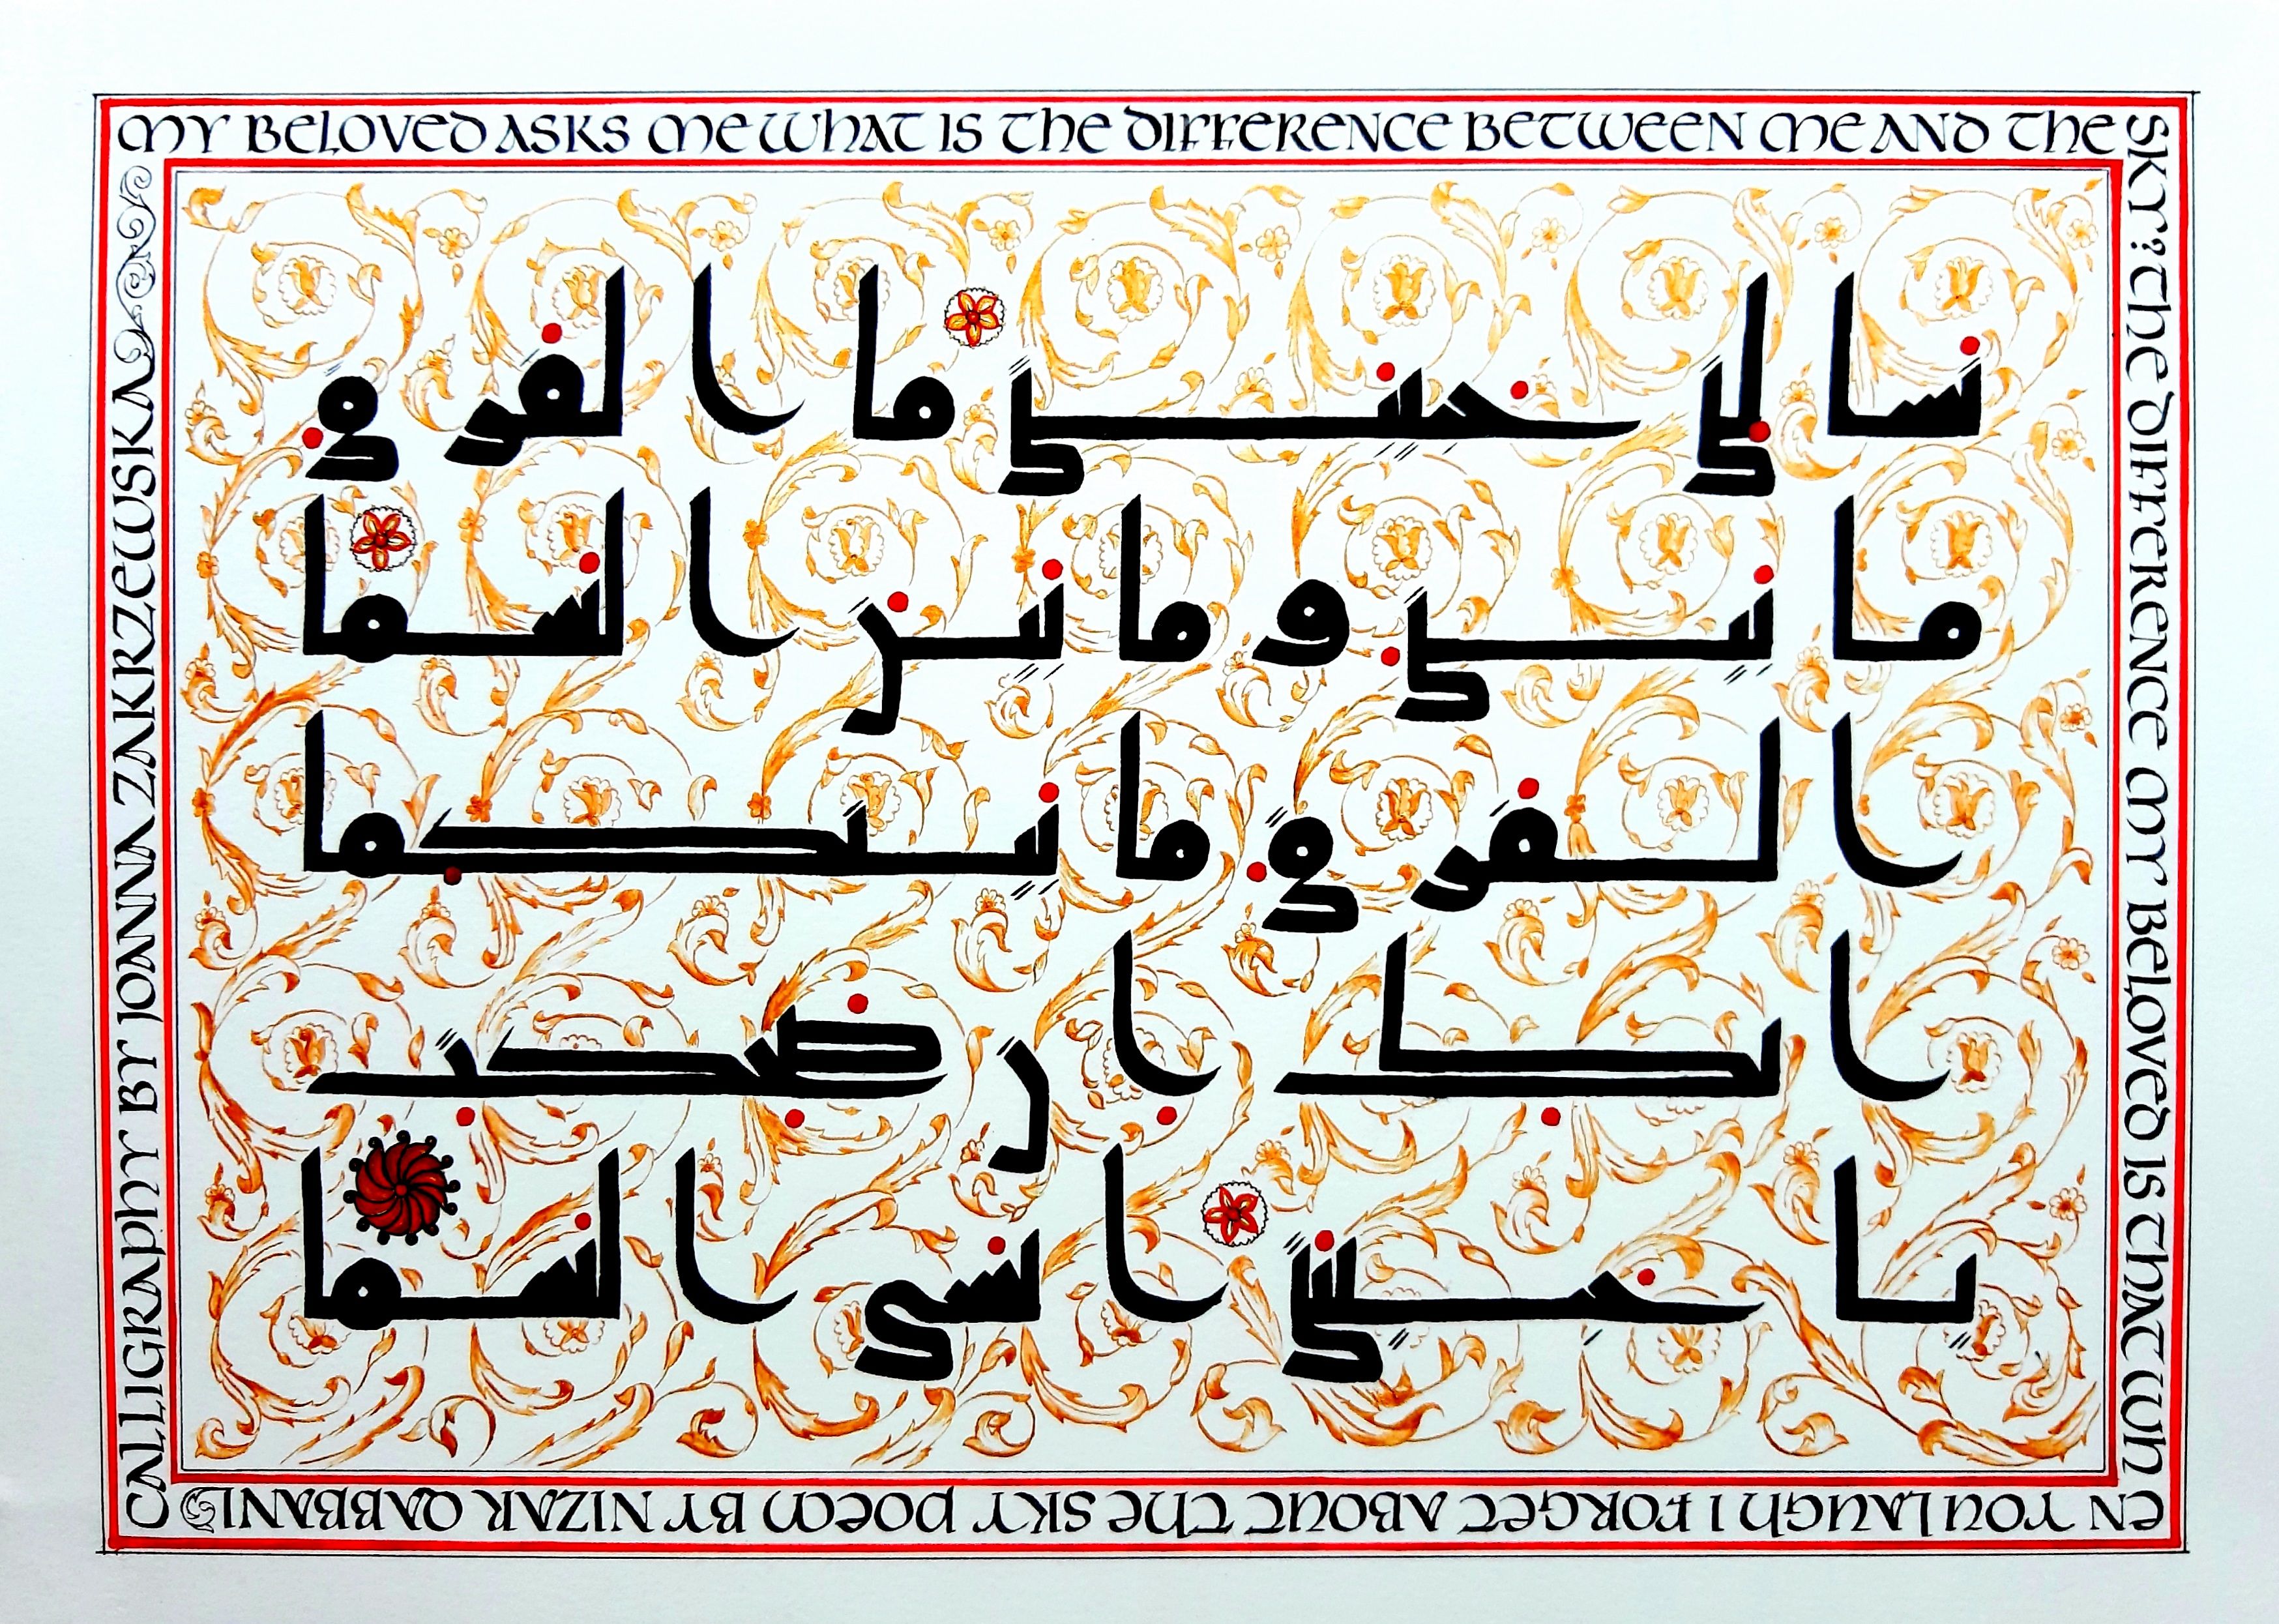 MY BELOVED ASKS ME WHAT IS THE DIFFERENCE BETWEEN ME AND THE
SKY? THE DIFFERENCE MY BELOVED IS THAT WH
EN YOU LAUGH I FORGET ABOUT THE SKY POEM BY NIZAR QABBANI
CALLIGRAPHY BY JOANNA ZAKRZEWSKA
تسالني حبيبتي ما الفرق
ما بيني وما بين السما
الفرق ما بينكما
انك ان ضحكت
يا حبيبتي انسى السما